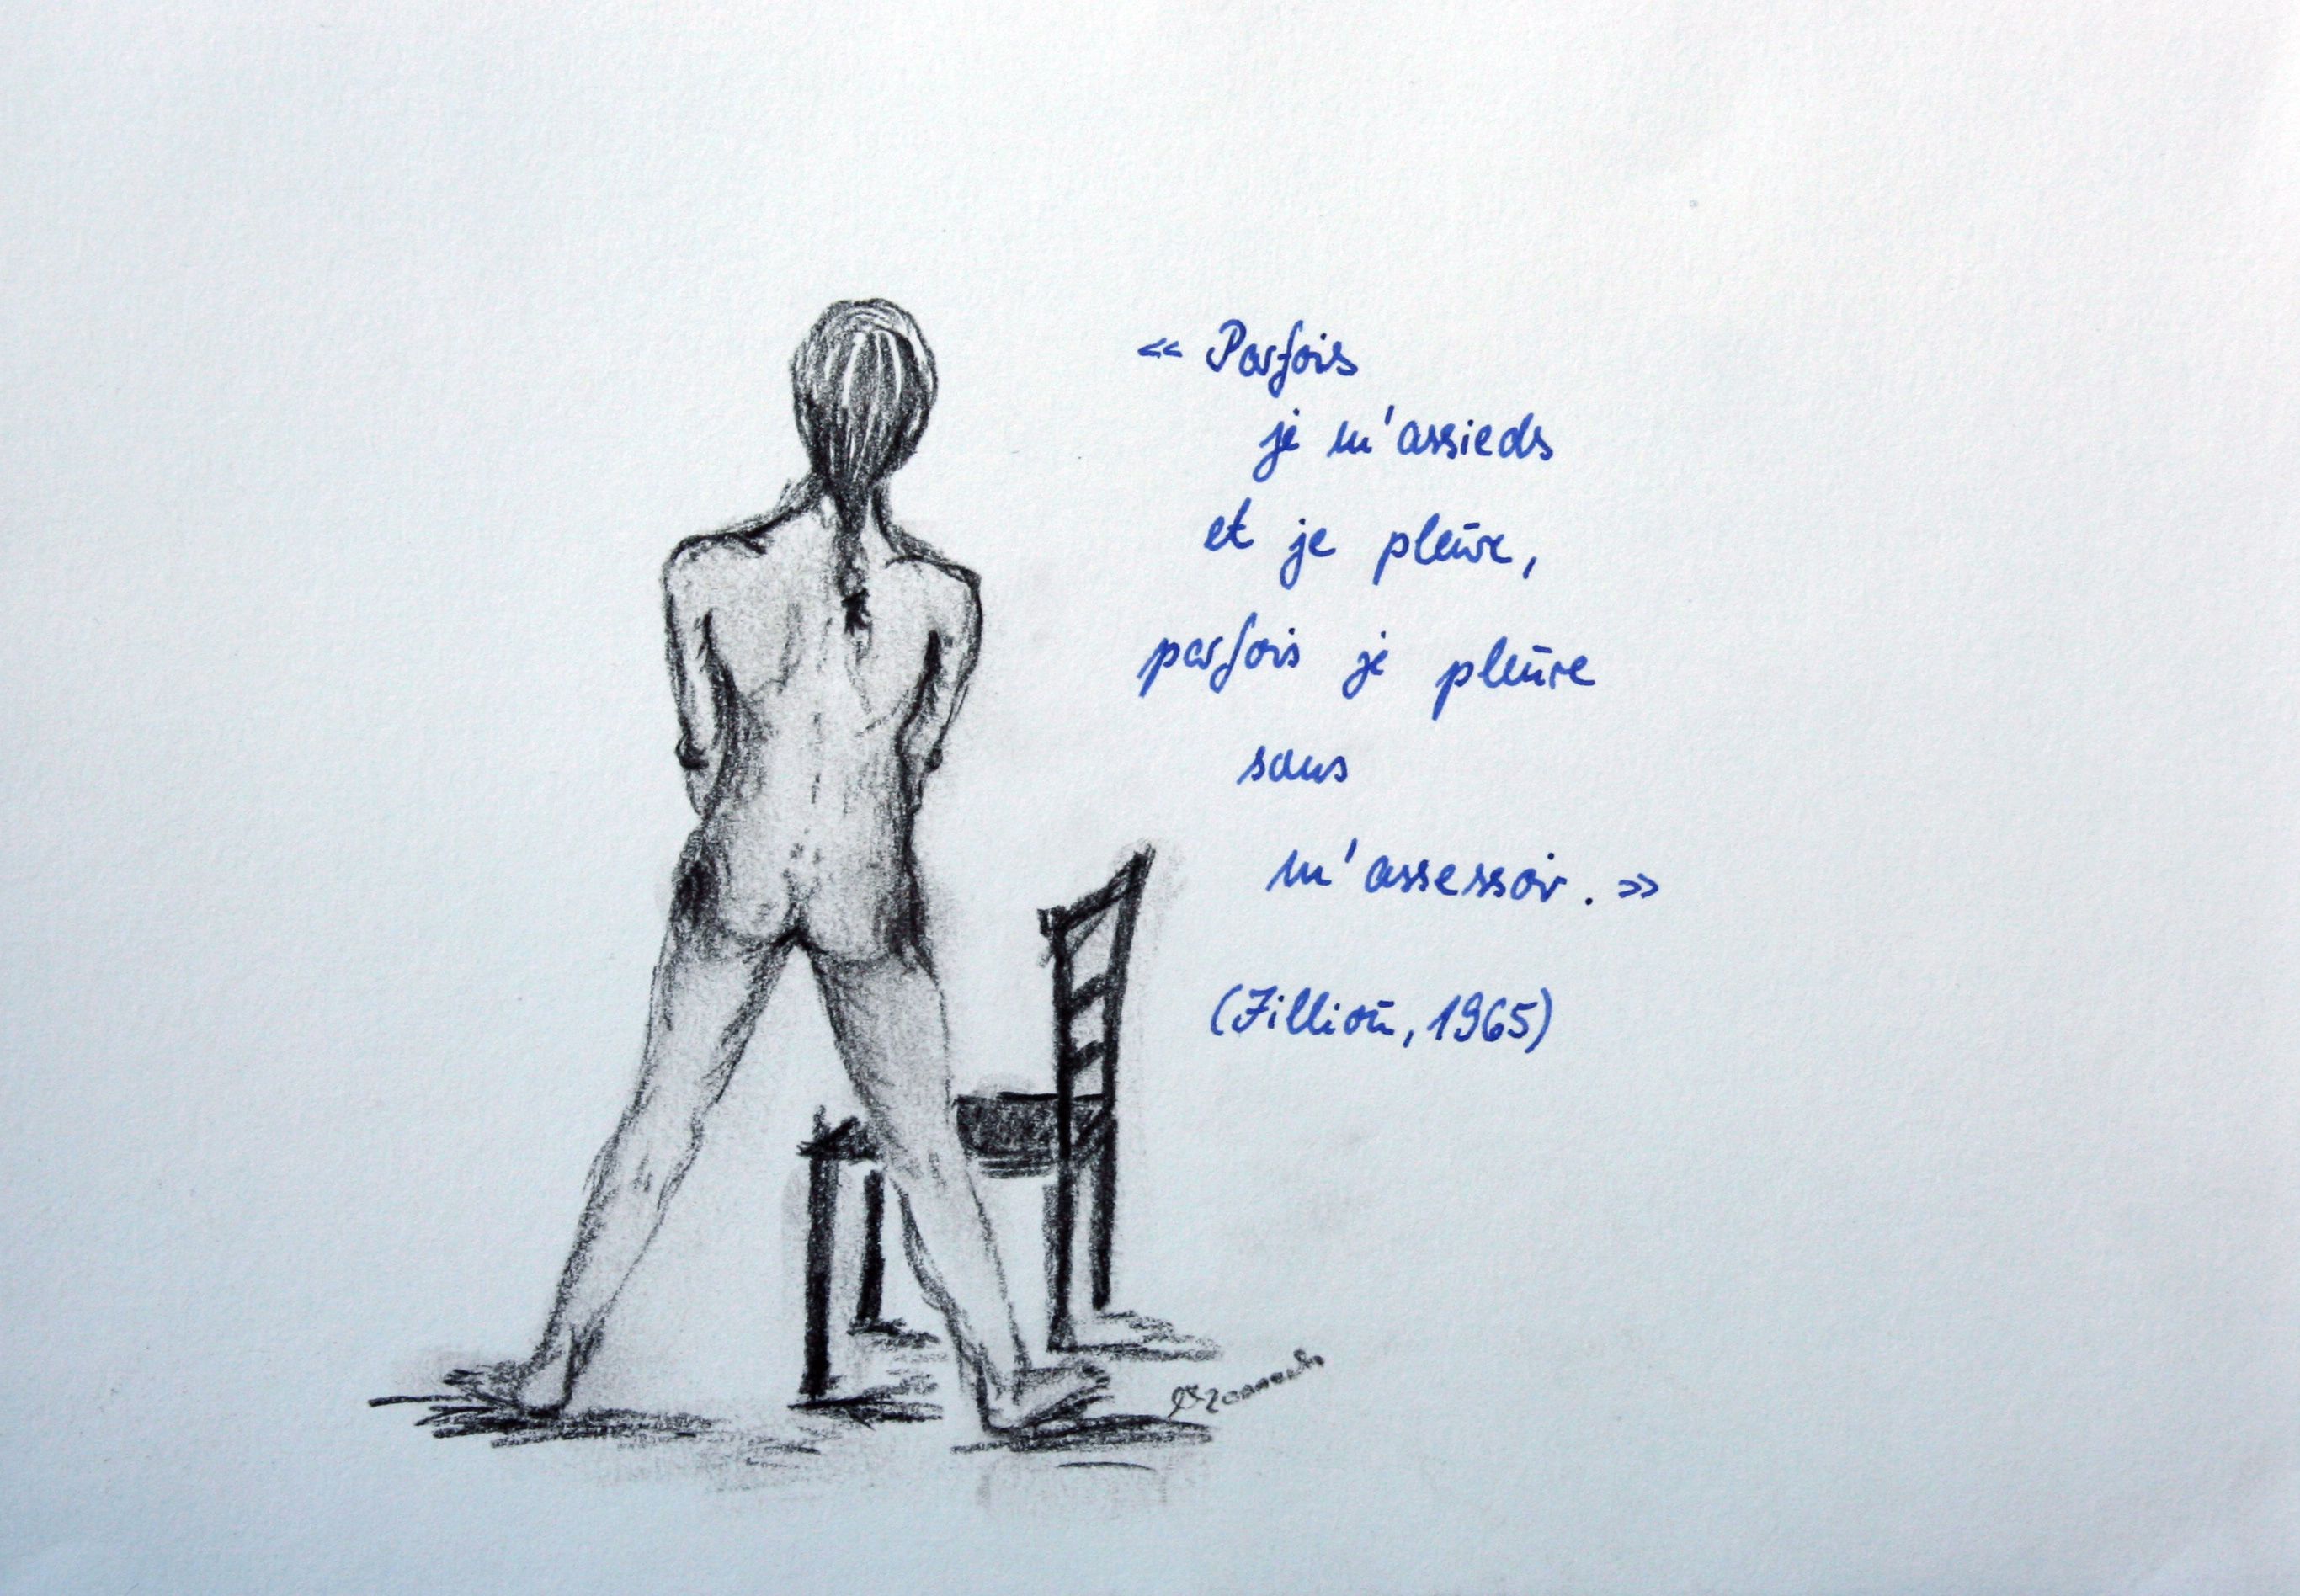 « Parfois
je m'assieds
et je pleure,
parfois je pleure
sans
m'assessoir. »
(Filliou, 1965)